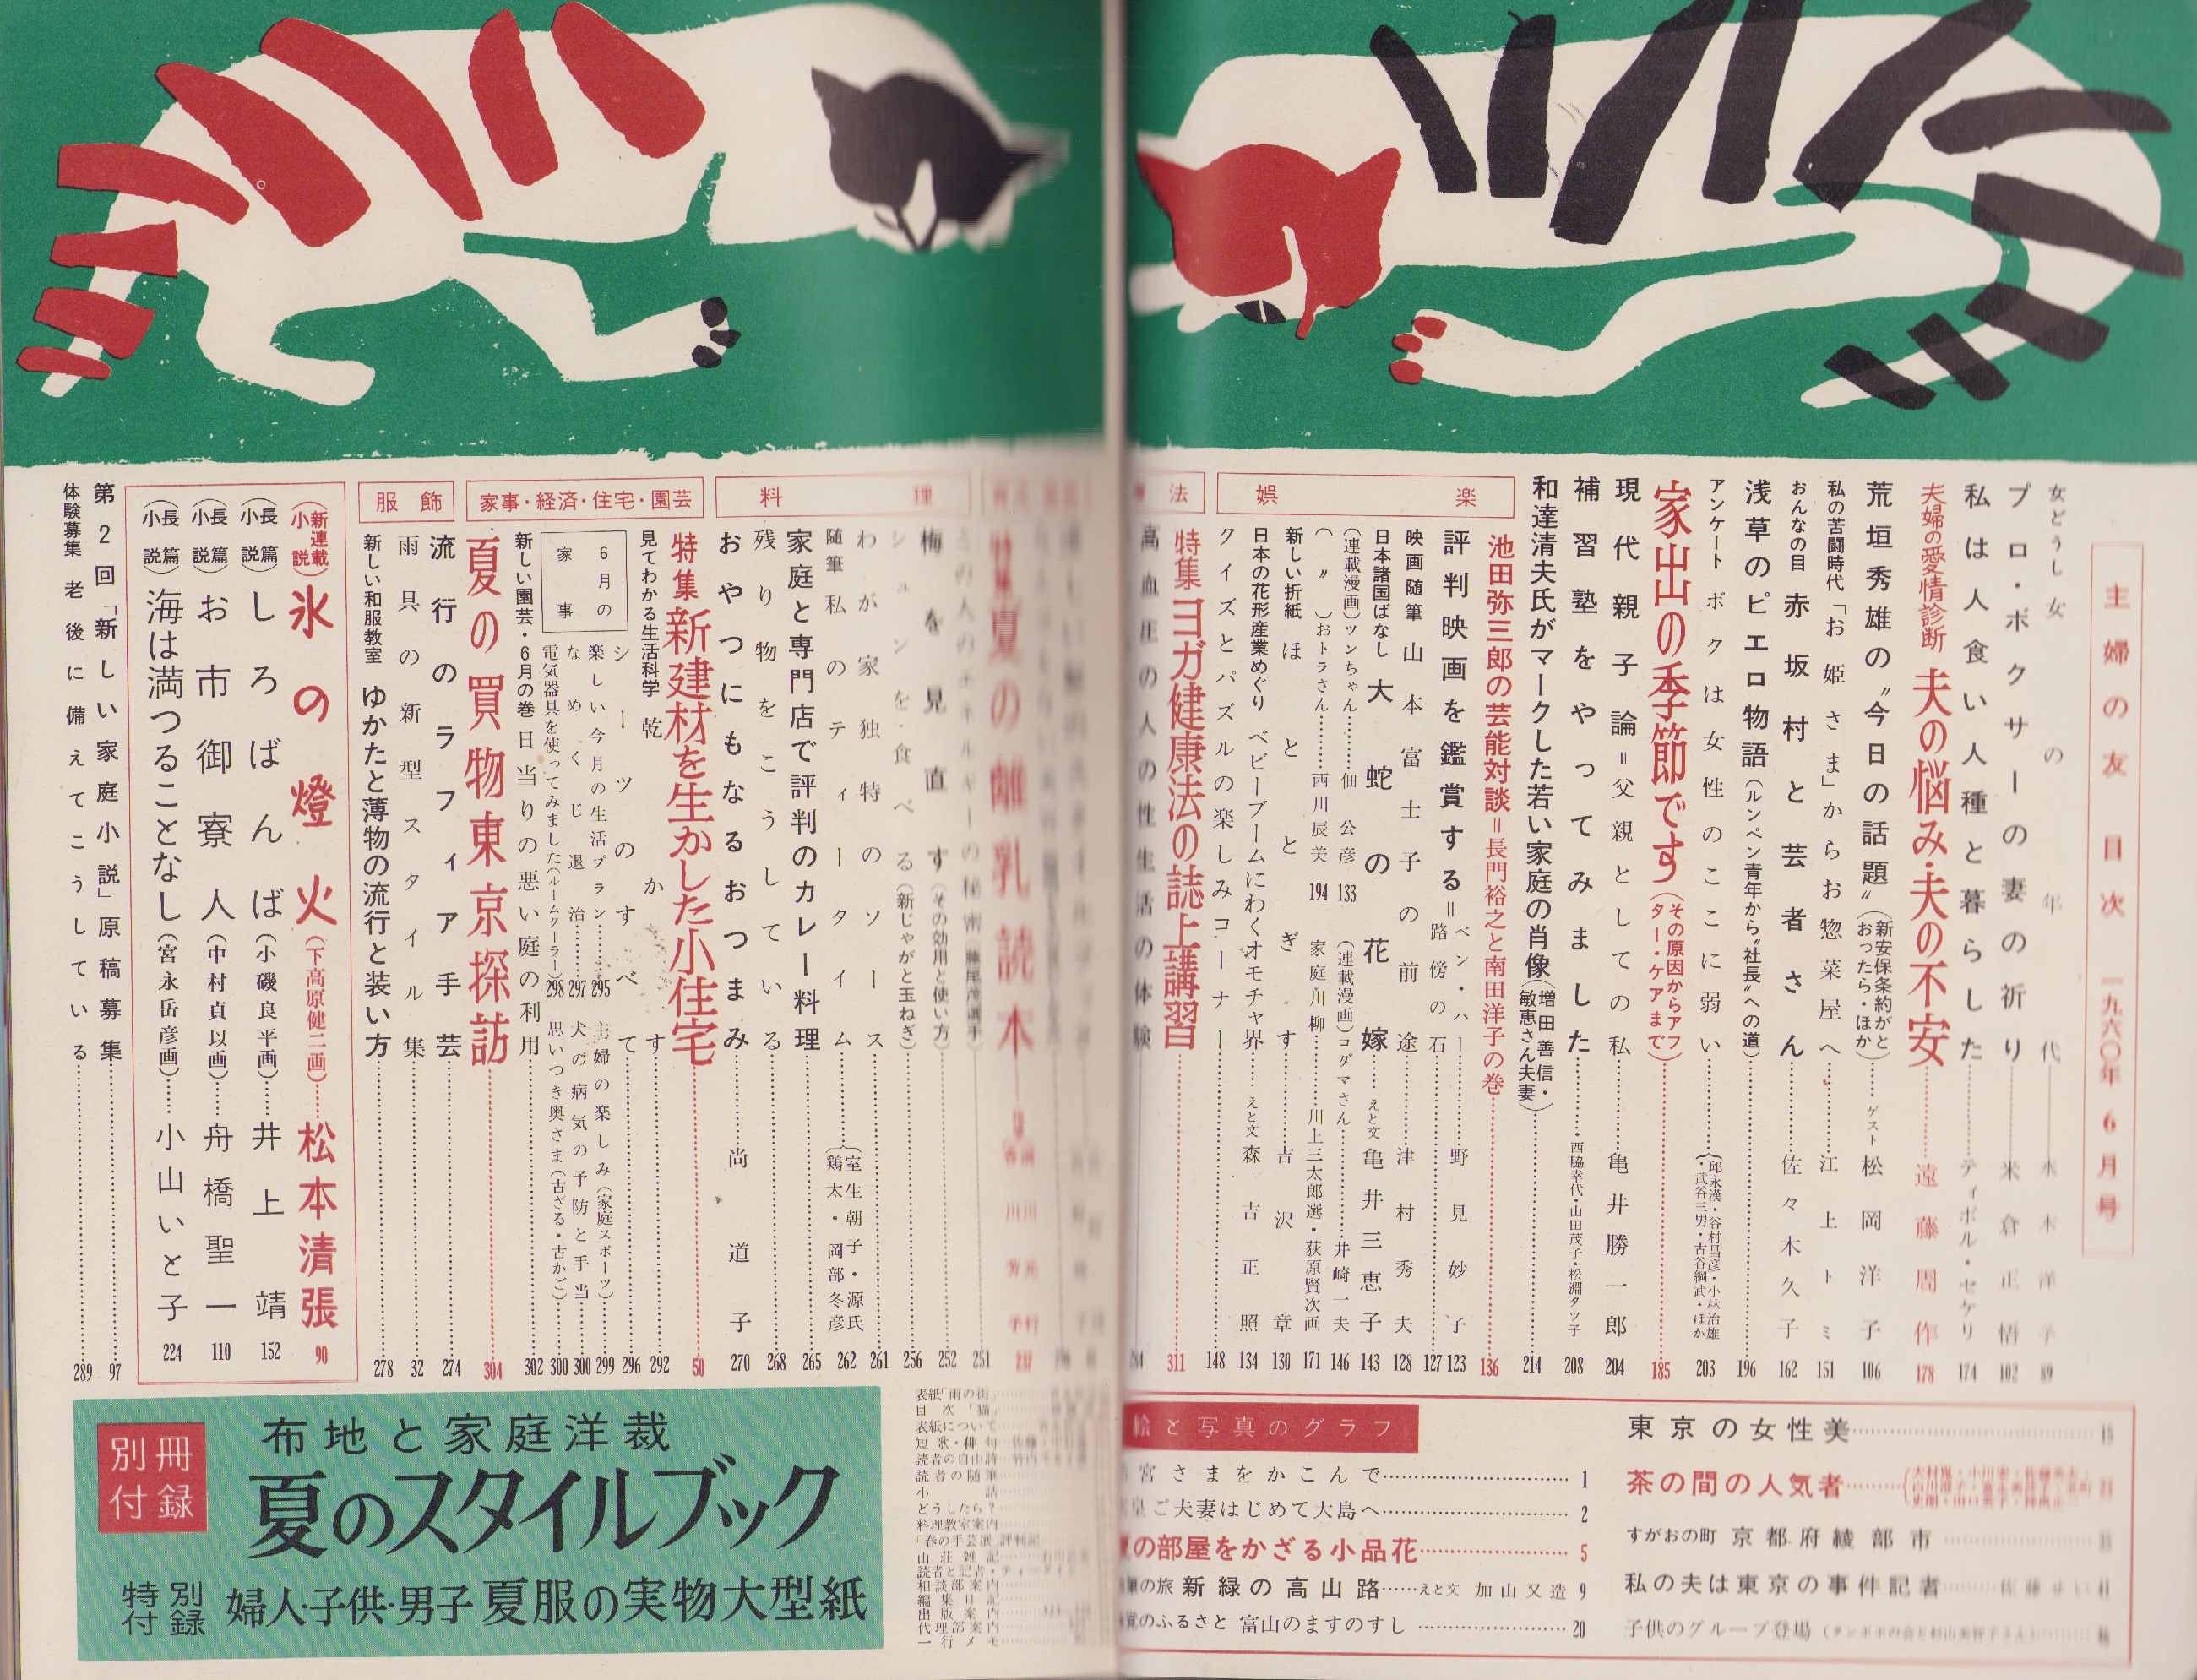 主婦の友 目次 一九六〇年6月号
女どうし女の年代 水木洋子 89
プロ・ボクサーの妻の祈り 米倉正悟 102
私は人食い人種と暮らした ティボル・セケリ 174
夫婦の愛情診断 夫の悩み・夫の不安 遠藤周作 178
荒垣秀雄の〝今日の話題〟(新安保条約がとおったら・ほか) ゲスト 松岡洋子 106
私の苦闘時代「お姫さま」からお惣菜屋へ 江上トミ 151
おんなの目 赤坂村と芸者さん 佐々木久子 162
浅草のピエロ物語(ルンペン青年から〝社長〟への道) 196
アンケート ボクは女性のここに弱い (邱永漢・谷村昌彦・小林治雄・武谷三男・古谷綱武・ほか 203
家出の季節です(その原因からアフター・ケアまで) 185
現代親子論=父親としての私 亀井勝一郎 204
補習塾をやってみました 西脇幸代・山田茂子・松淵タツ子 208
和達清夫氏がマークした若い家庭の肖像(増田善信・敏恵さん夫妻) 214
池田弥三郎の芸能対談=長門裕之と南田洋子の巻 136
娯楽
評判映画を鑑賞する=ベン・ハー 路傍の石 野見妙子 123 127
映画随筆 山本富士子の前途 津村秀夫 128
日本諸国ばなし 大蛇の花嫁 えと文 亀井三恵子 143
(連載漫画)ツンちゃん 佃公彦 133
(連載漫画)コダマさん 井崎一夫 146
(〃)おトラさん 西川辰美 194
家庭川柳 川上三太郎選・荻原賢次画 171
新しい折紙 ほととぎす 吉沢章 130
日本の花形産業めぐり ベビーブームにわくオモチャ界 えと文 森吉正照 134
クイズとパズルの楽しみコーナー 148
法
特集 ヨガ健康法の誌上講習 311
高血圧の人の性生活の体験
絵と写真のグラフ
宮さまをかこんで 1
ご夫妻はじめて大島へ 2
の部屋をかざる小品花 5
の旅 新緑の高山路 えと文 加山又造 9
のふるさと 富山のますのすし 20
東京の女性美
茶の間の人気者
すがおの町 京都府綾部市
私の夫は東京の事件記者
子供のグループ登場
特集 夏の離乳読本 237
251
梅を見直す(その効用と使い方) 252
シュンを食べる(新じゃがと玉ねぎ) 256
料理
わが家独特のソース 261
随筆 私のティータイム (室生朝子・源氏鶏太・岡部冬彦 262
家庭と専門店で評判のカレー料理 265
残り物をこうしている 268
おやつにもなるおつまみ 尚道子 270
家事・経済・住宅・園芸
特集 新建材を生かした小住宅 50
見てわかる生活科学 乾かす 292
シーツのすべて 296
6月の家事
楽しい今月の生活プラン 295
なめくじ退治 297
電気器具を使ってみました(ルームクーラー) 298
主婦の楽しみ(家庭スポーツ) 299
犬の病気の予防と手当 300
思いつき奥さま(古ざる・古かご) 300
新しい園芸・6月の巻 日当りの悪い庭の利用 302
夏の買物東京探訪 304
服飾
流行のラフィア手芸 274
雨具の新型スタイル集 32
新しい和服教室 ゆかたと薄物の流行と装い方 278
(新連載小説) 氷の燈火(下高原健二画) 松本清張 90
(長篇小説) しろばんば(小磯良平画) 井上靖 152
(長篇小説) お市御寮人(中村貞以画) 舟橋聖一 110
(長篇小説) 海は満つることなし(宮永岳彦画) 小山いと子 224
第2回「新しい家庭小説」原稿募集 97
体験募集 老後に備えてこうしている 289
表紙「雨の街」
目次「猫」
表紙について
短歌・俳句
読者の自由詩
読者の随筆
小話
どうしたら?
料理教室案内
「春の手芸展」評判記
山荘雑記
読者と記者・ティータイム
相談部案内
編集日記
出版案内
代理部案内
一行メモ
別冊付録
布地と家庭洋裁
夏のスタイルブック
特別付録 婦人・子供・男子 夏服の実物大型紙